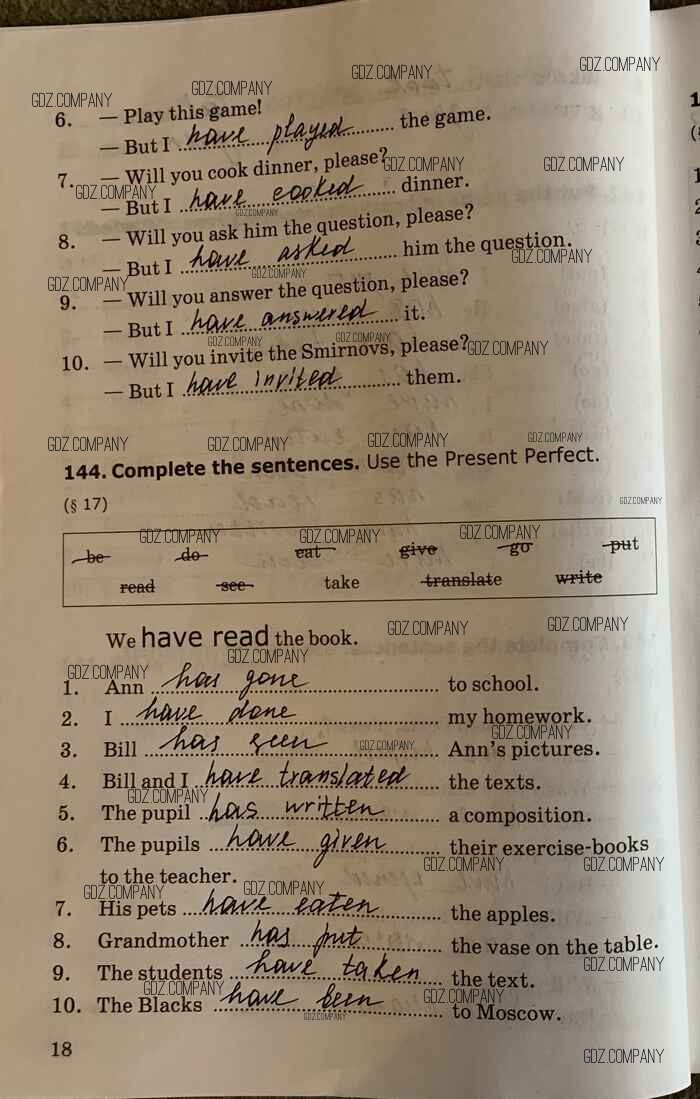 6. — Play this game!
— But I have played the game.
7. — Will you cook dinner, please?
— But I have cooked dinner.
8. — Will you ask him the question, please?
— But I have asked him the question.
9. — Will you answer the question, please?
— But I have answered it.
10. — Will you invite the Smirnovs, please?
— But I have invited them.
144. Complete the sentences. Use the Present Perfect.
(§ 17)
be do eat give go put
read see take translate write
We have read the book.
1. Ann has gone to school.
2. I have done my homework.
3. Bill has seen Ann's pictures.
4. Bill and I have translated the texts.
5. The pupil has written a composition.
6. The pupils have given their exercise-books
to the teacher.
7. His pets have eaten the apples.
8. Grandmother has put the vase on the table.
9. The students have taken the text.
10. The Blacks have been to Moscow.
18
GDZ.COMPANY